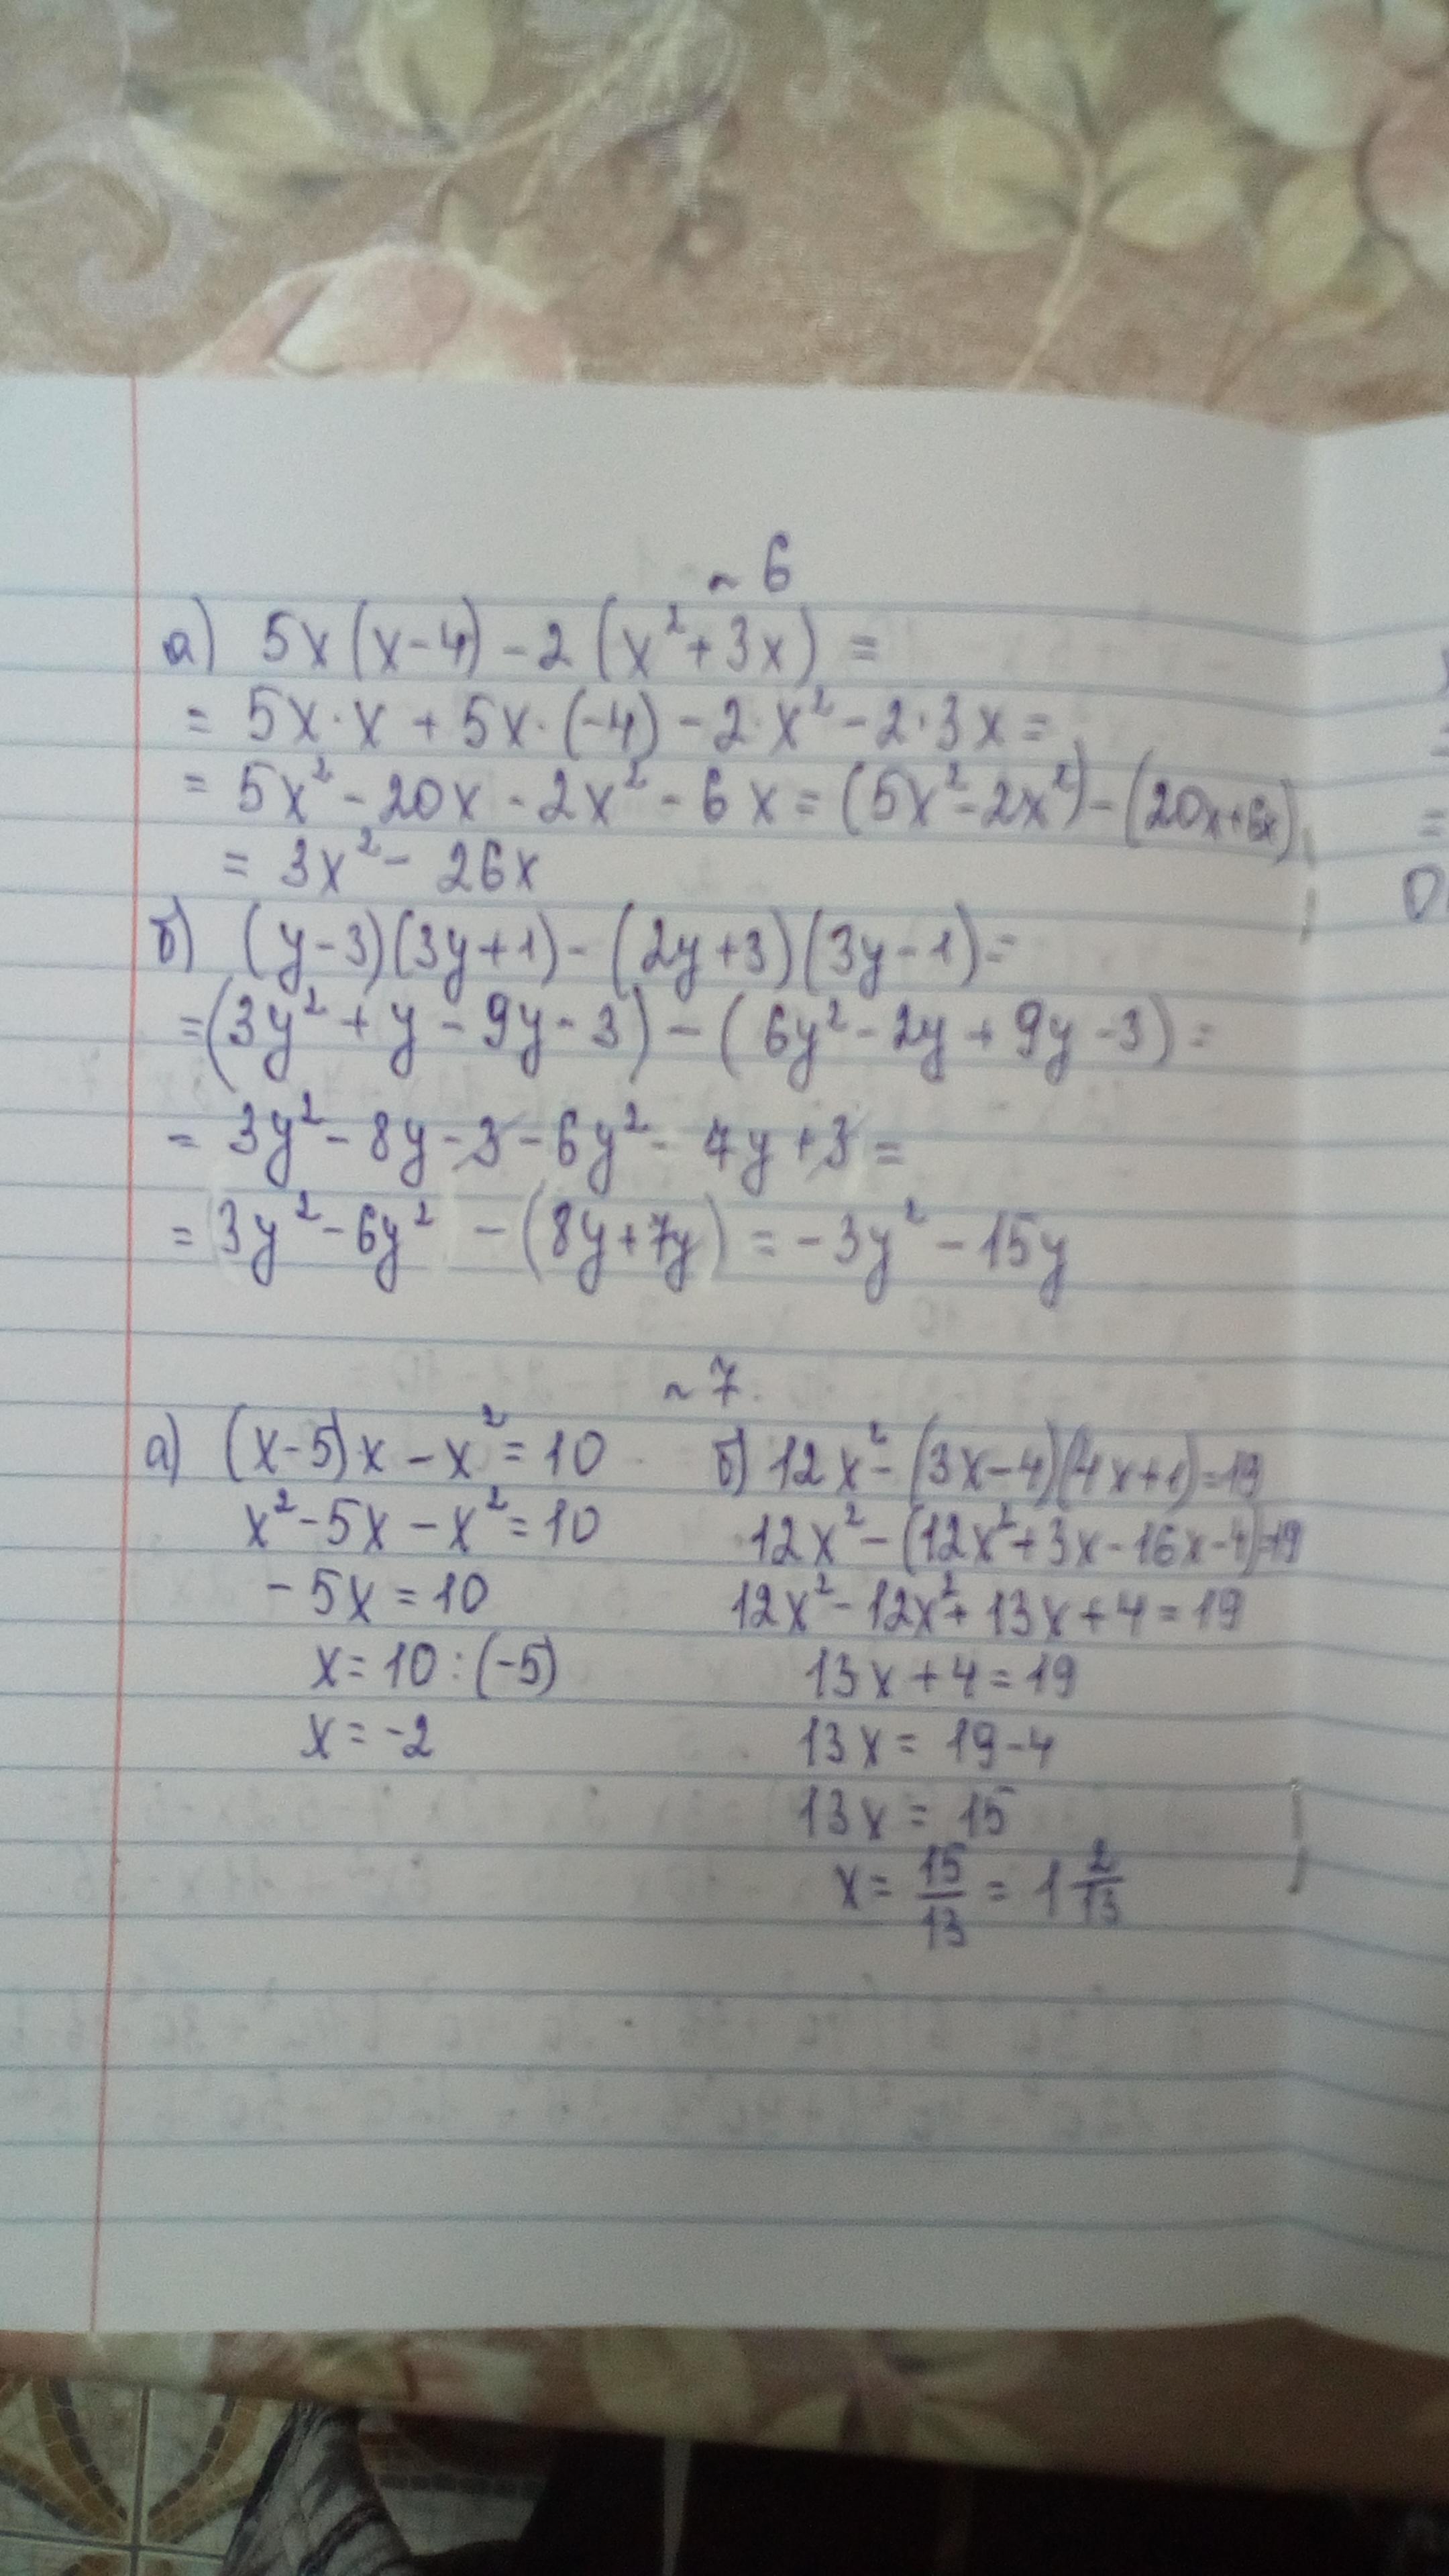 ~ 6
а) 5x(x-4)-2(x²+3x)=
= 5x·x+5x·(-4)-2·x²-2·3x=
= 5x²-20x-2x²-6x=(5x²-2x²)-(20x+6x)
= 3x²- 26x
б) (y-3)(3y+1)-(2y+3)(3y-1)=
=(3y²+y-9y-3)-(6y²-2y+9y-3)=
= 3y²-8y-3-6y²-7y+3=
= (3y²-6y²)-(8y+7y)=-3y²-15y
~ 7.
а) (x-5)x-x²=10
x²-5x-x²=10
-5x=10
x=10:(-5)
x=-2
б) 12x²-(3x-4)(4x+1)=19
12x²-(12x²+3x-16x-4)=19
12x²-12x²+13x+4=19
13x+4=19
13x=19-4
13x=15
x=15/13=1 2/13